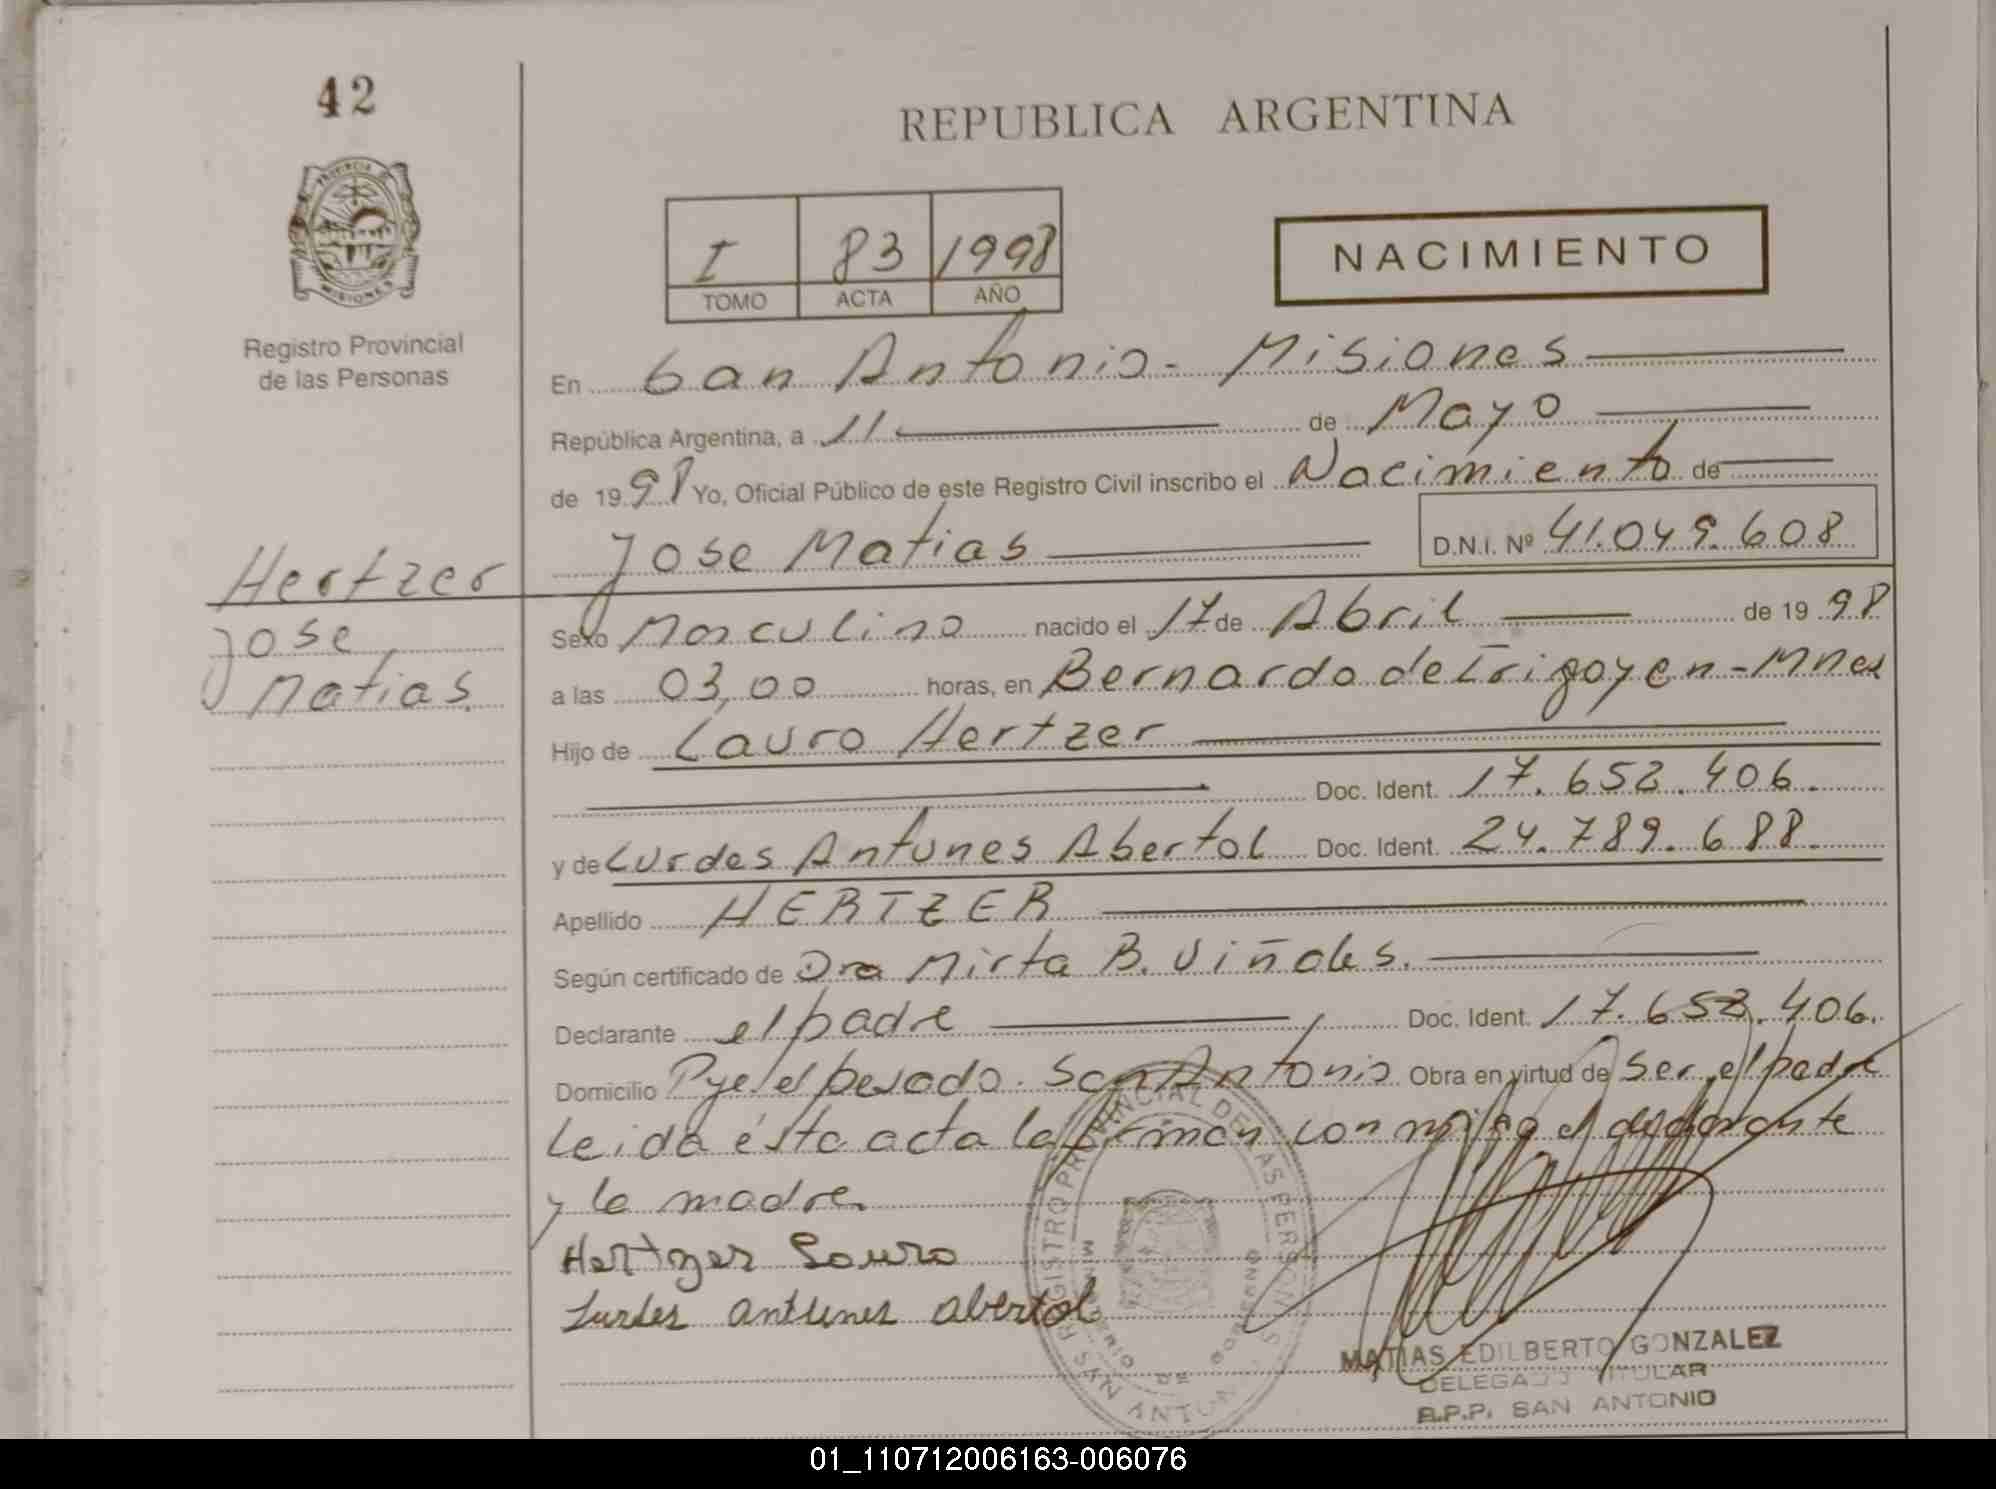 42
REPUBLICA ARGENTINA
PROVINCIA DE
MISIONES
Registro Provincial
de las Personas
I 83 1998
TOMO ACTA AÑO
NACIMIENTO
En San Antonio - Misiones
República Argentina, a 11 de Mayo
de 1998 Yo, Oficial Público de este Registro Civil inscribo el Nacimiento de
Jose Matias D.N.I. Nº 41.049.608
Hertzer
Jose
Matias
Sexo Masculino nacido el 17 de Abril de 1998
a las 03,00 horas, en Bernardo de Irigoyen - Mnes
Hijo de Lauro Hertzer
Doc. Ident. 17.652.406.
y de Lurdes Antunes Abertol Doc. Ident. 24.789.688.
Apellido HERTZER
Según certificado de Dra Mirta B. Viñales.
Declarante el padre Doc. Ident. 17.652.406.
Domicilio San Antonio Obra en virtud de Ser el padre
Leida ésta acta la firman con migo el declarante
y la madre.
Hertzer Lauro
Lurdes antunes abertol
REGISTRO PROVINCIAL DE LAS PERSONAS
MINISTERIO DE GOBIERNO
SAN ANTONIO
MATIAS EDILBERTO GONZALEZ
DELEGADO TITULAR
R.P.P. SAN ANTONIO
01_110712006163-006076